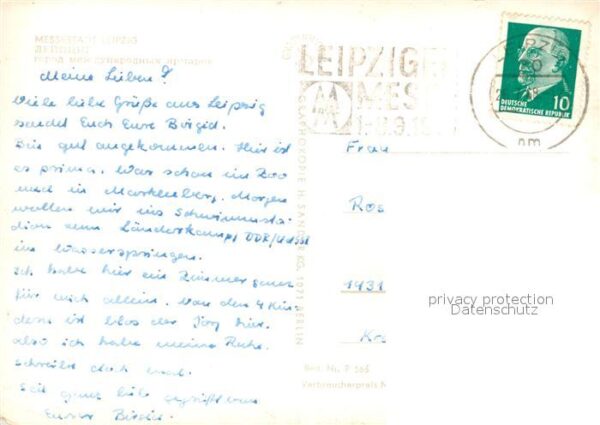 MESSESTADT LEIPZIG
ЛЕЙПЦИГ
город международных ярмарок
Meine Lieben!
Viele liebe Grüße aus Leipzig
sendet Euch Eure Birgid.
Bin gut angekommen. Hier ist
es prima. War schon im Zoo
und in Markleeberg. Morgen
wollen wir ins Schwimmsta-
dion zum Länderkampf DDR/UdSSR
im Wasserspringen.
Ich habe hier ein Zimmer ganz
für mich allein. Von den 4 Kin-
dern ist blos der Jörg hier.
also ich habe meine Ruhe.
Schreibt doch mal.
Seid ganz lieb gegrüßt von
Eurer Birgid.
LEIPZIGER
MES
MM
DEUTSCHE
DEMOKRATISCHE REPUBLIK
10
nm
GRAPHOKOPIE H. SANDER KG, 1071 BERLIN
Frau
Ros
1431
Kr
Best. Nr. P 565
Verbraucherpreis M
privacy protection
Datenschutz